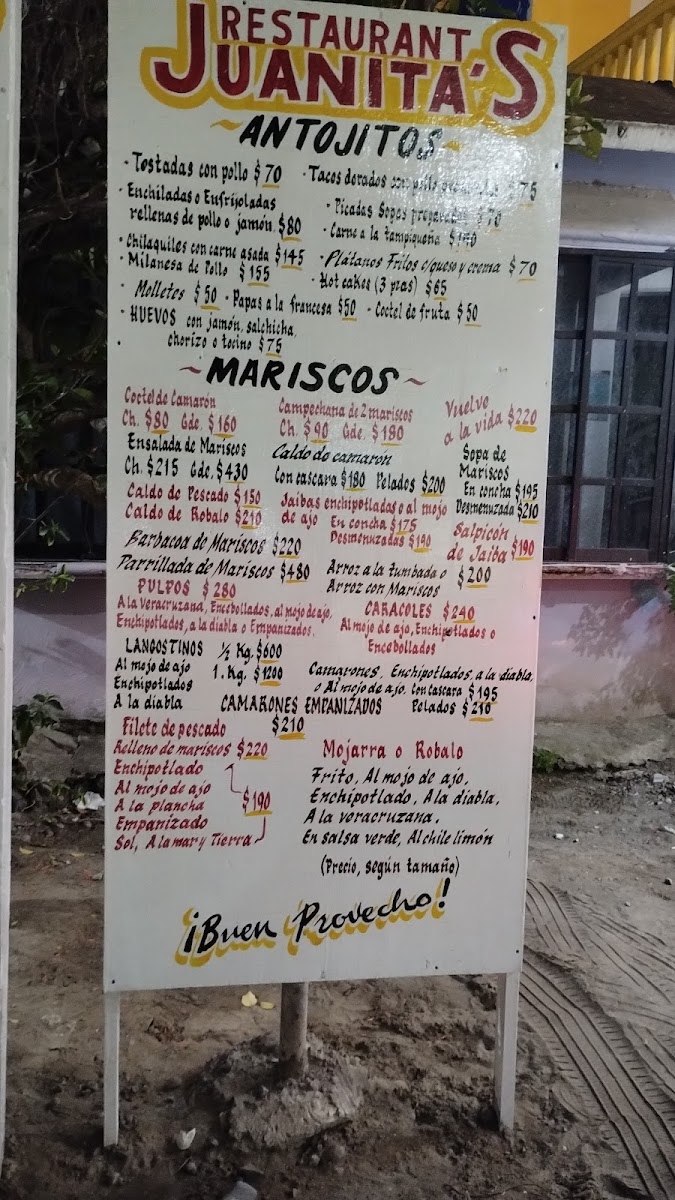 RESTAURANT
JUANITA'S
~ANTOJITOS~
· Tostadas con pollo $70
· Enchiladas o Enfrijoladas
rellenas de pollo o jamón. $80
· Chilaquiles con carne asada $145
· Milanesa de Pollo $155
· Molletes $50
· HUEVOS con jamón, salchicha,
chorizo o tocino $75
· Tacos dorados con pollo $75
· Picadas Sopes $70
· Carne a la tampiqueña
· Plátanos Fritos c/queso y crema $70
· Hot cakes (3 pzas) $65
· Papas a la francesa $50 · Coctel de fruta $50
~MARISCOS~
Coctel de Camaron
Ch. $80 Gde. $160
Ensalada de Mariscos
Ch. $215 Gde. $430
Caldo de Pescado $150
Caldo de Robalo $210
Campechana de 2 mariscos
Ch. $90 Gde. $180
Caldo de camarón
Con cascara $180 Pelados $200
Jaibas enchipotladas o al mojo
de ajo En concha $175
Desmenuzadas $190
Vuelve
a la vida $220
Sopa de
Mariscos
En concha $195
Desmenuzada $210
Salpicón
de Jaiba $190
Barbacoa de Mariscos $220
Parrillada de Mariscos $480
Arroz a la tumbada o
Arroz con Mariscos $200
PULPOS $280
A la Veracruzana, Encebollados, al mojo de ajo,
Enchipotlados, a la diabla o Empanizados.
CARACOLES $240
Al mojo de ajo, Enchipotlados o
Encebollados
LANGOSTINOS ½ Kg. $600
Al mojo de ajo 1. Kg. $1200
Enchipotlados
A la diabla
Camarones, Enchipotlados, a la diabla,
o Al mojo de ajo. Con cascara $195
Pelados $210
CAMARONES EMPANIZADOS
$210
Filete de pescado
Relleno de mariscos $220
Enchipotlado
Al mojo de ajo
A la plancha $190
Empanizado
Sol, A la mar y Tierra
Mojarra o Robalo
Frito, Al mojo de ajo,
Enchipotlado, A la diabla,
A la veracruzana,
En salsa verde, Al chile limón
(Precio, según tamaño)
¡Buen Provecho!